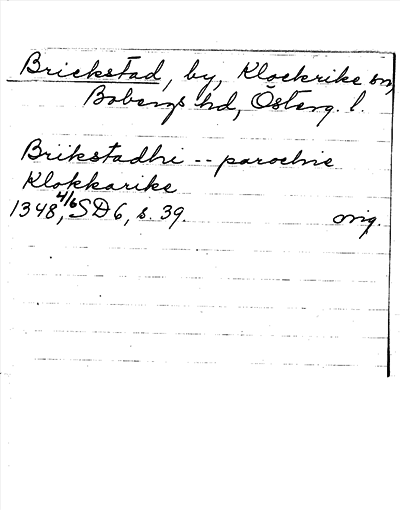 Brickstad, by, Klockrike sn,
Bobergs hd, Österg. l.
Brikstadhi -- parochie
Klokkarike
1348 4/6, SD 6, s. 39. orig.